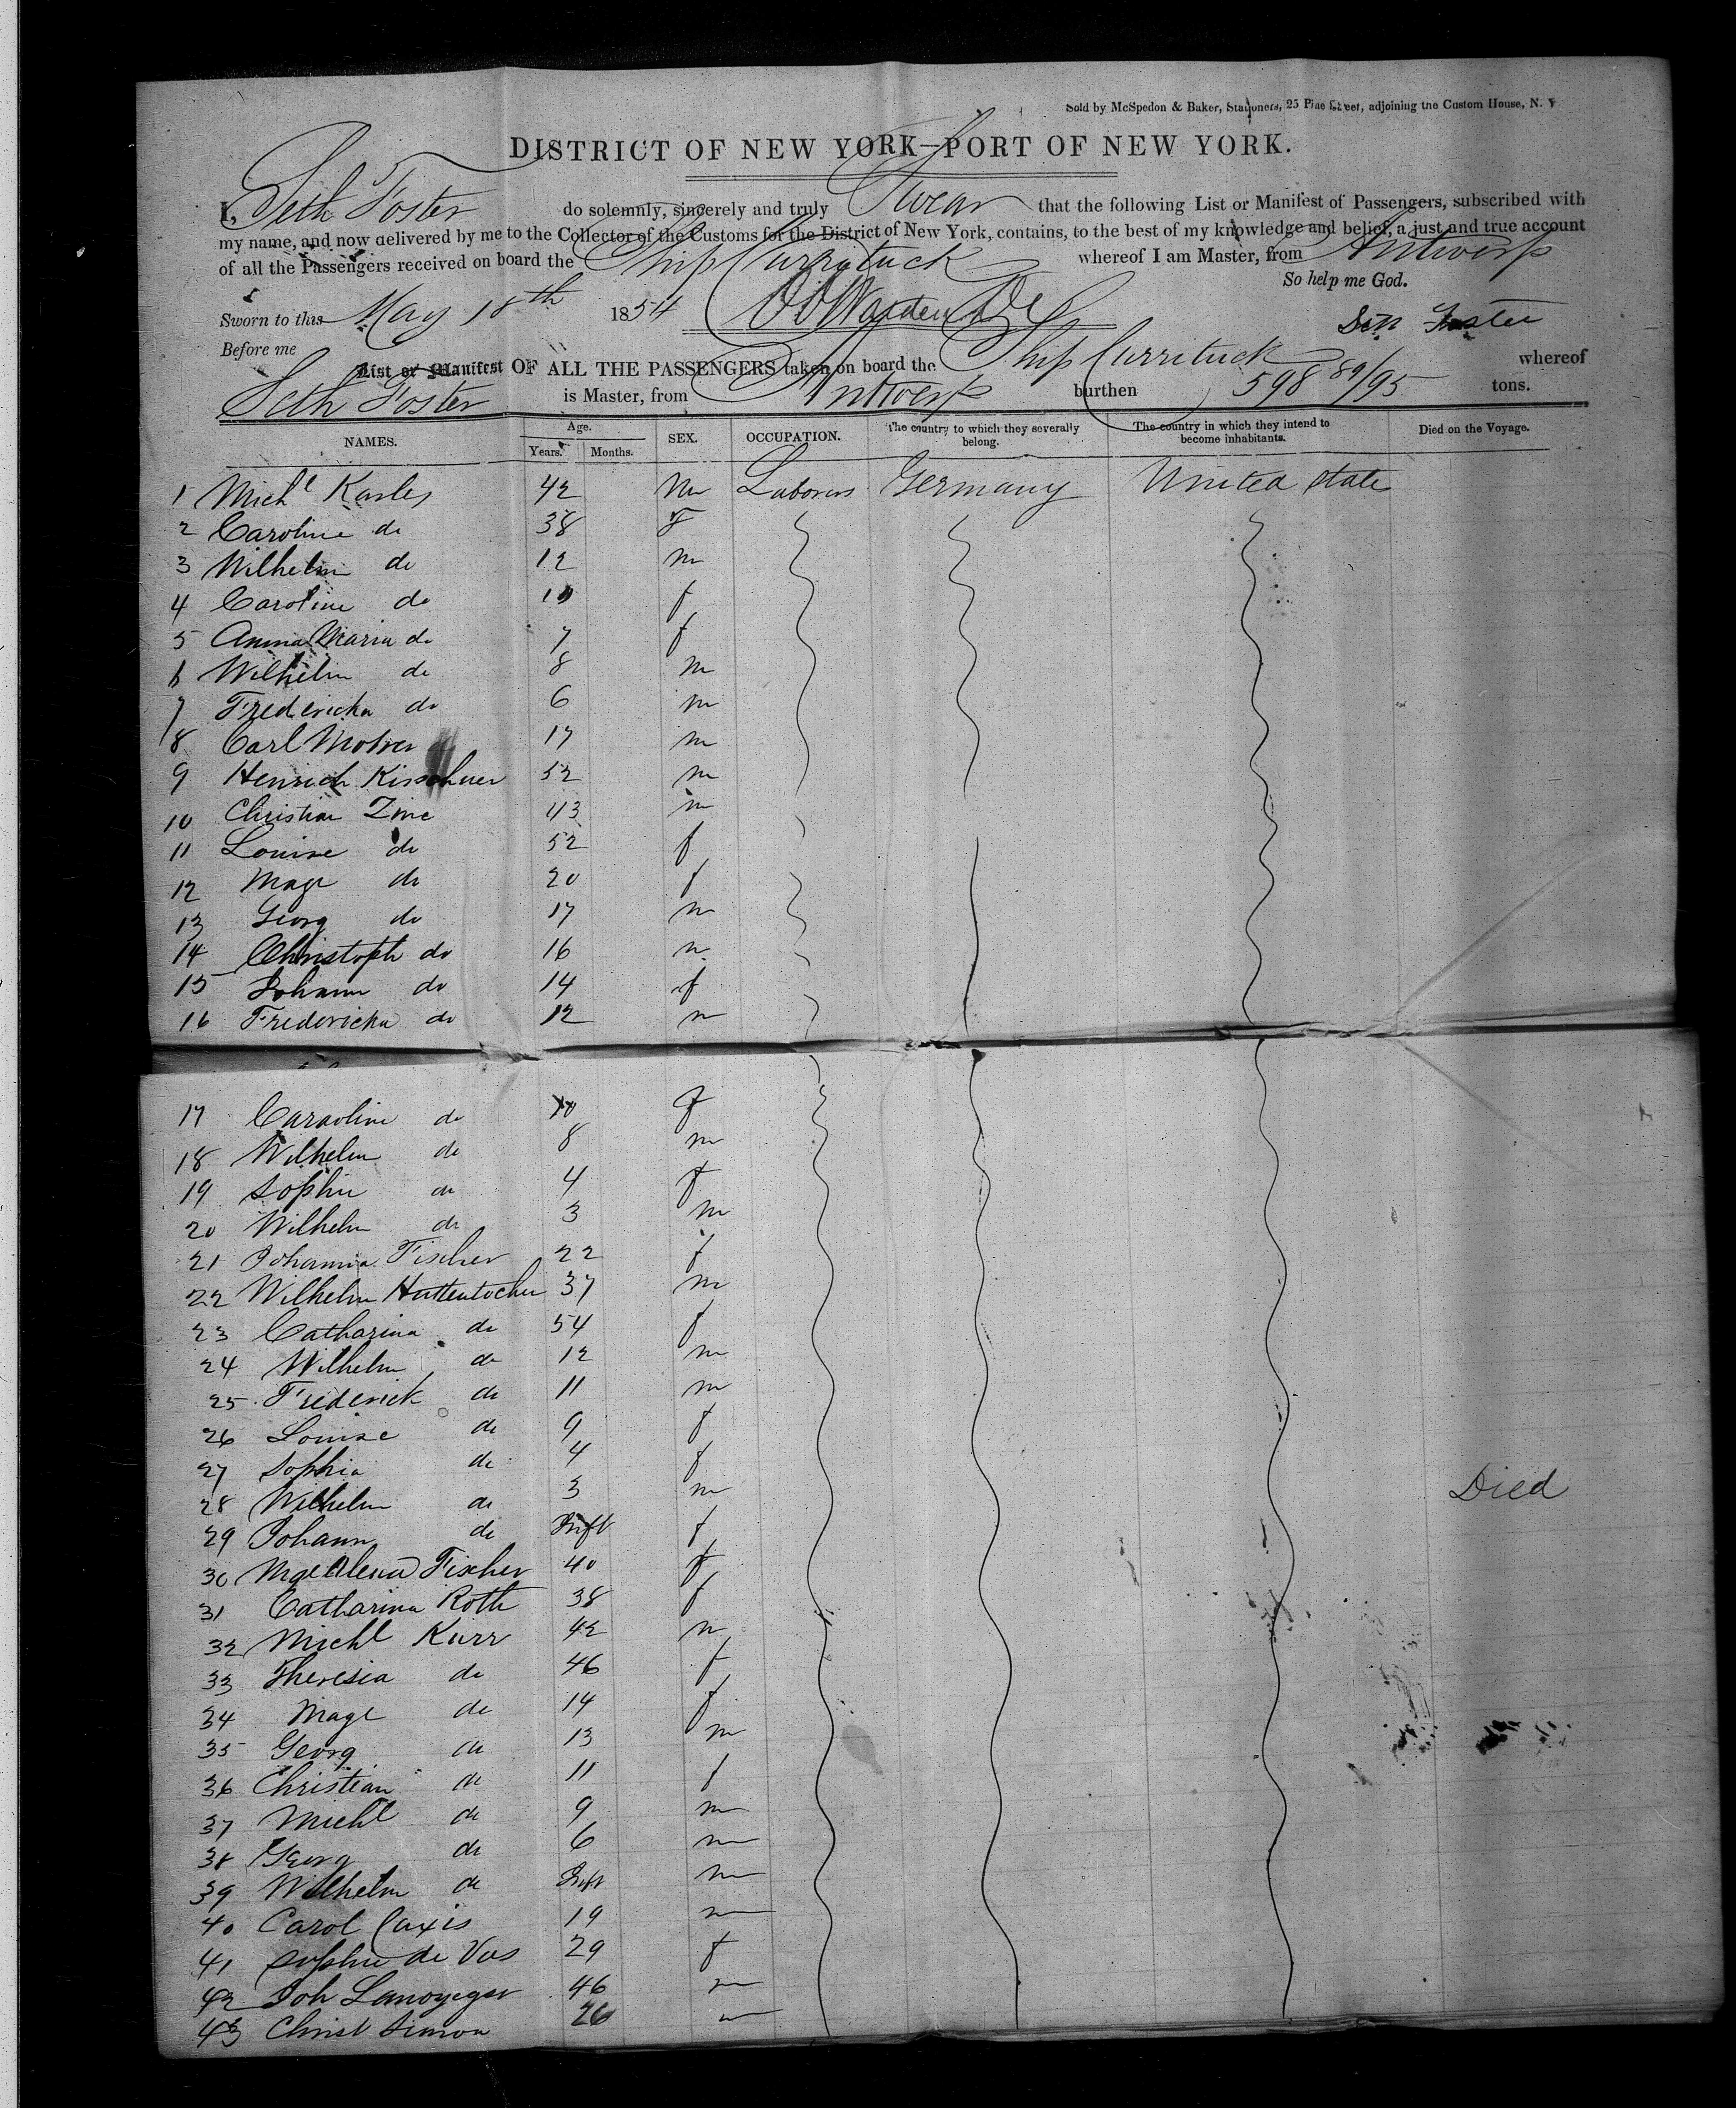 Sold by McSpedon & Baker, Stationers, 25 Pine Street, adjoining the Custom House, N. Y
DISTRICT OF NEW YORK—PORT OF NEW YORK.
I, Seth Foster do solemnly, sincerely and truly Swear that the following List or Manifest of Passengers, subscribed with
my name, and now delivered by me to the Collector of the Customs for the District of New York, contains, to the best of my knowledge and belief, a just and true account
of all the Passengers received on board the Ship Currituck whereof I am Master, from Antwerp
So help me God.
Sworn to this May 18th 1854
Seth Foster
Before me
List or Manifest OF ALL THE PASSENGERS taken on board the Ship Currituck whereof
Seth Foster is Master, from Antwerp burthen 598 89/95 tons.
NAMES. Age. Years. Months. SEX. OCCUPATION. The country to which they severally belong. The country in which they intend to become inhabitants. Died on the Voyage.
1 Michl Karles 42 m Laborers Germany United State
2 Caroline do 38 F
3 Wilhelm do 12 m
4 Caroline do 10 f
5 Anna Maria do 7 f
6 Wilhelm do 8 m
7 Fredericka do 6 m
8 Carl 17 m
9 Henrich Kirschner 52 m
10 Christian Zinc 43 m
11 Louise do 52 f
12 Magr do 20 f
13 Georg do 17 m
14 Christoph do 16 m
15 Johann do 14 f
16 Fredericka do 12 m
17 Caraoline do 10 f
18 Wilhelm do 8 m
19 Sophie do 4 f
20 Wilhelm do 3 m
21 Johanna Fischer 22 f
22 Wilhelm Huttentocher 37 m
23 Catharina do 54 f
24 Wilhelm do 12 m
25 Frederick do 11 m
26 Louise do 9 f
27 Sophia do 4 f
28 Wilhelm do 3 m Died
29 Johann do Inft f
30 Magdalena Fischer 40 f
31 Catharina Roth 38 f
32 Michl Kurr 42 m
33 Theresia do 46 f
34 Magl do 14 f
35 Georg do 13 m
36 Christian do 11 f
37 Michl do 9 m
38 Georg do 6 m
39 Wilhelm do Inft m
40 Carol Caxis 19 m
41 Sophie de Vos 29 f
42 Joh 46 m
43 Christ Simon 26 m